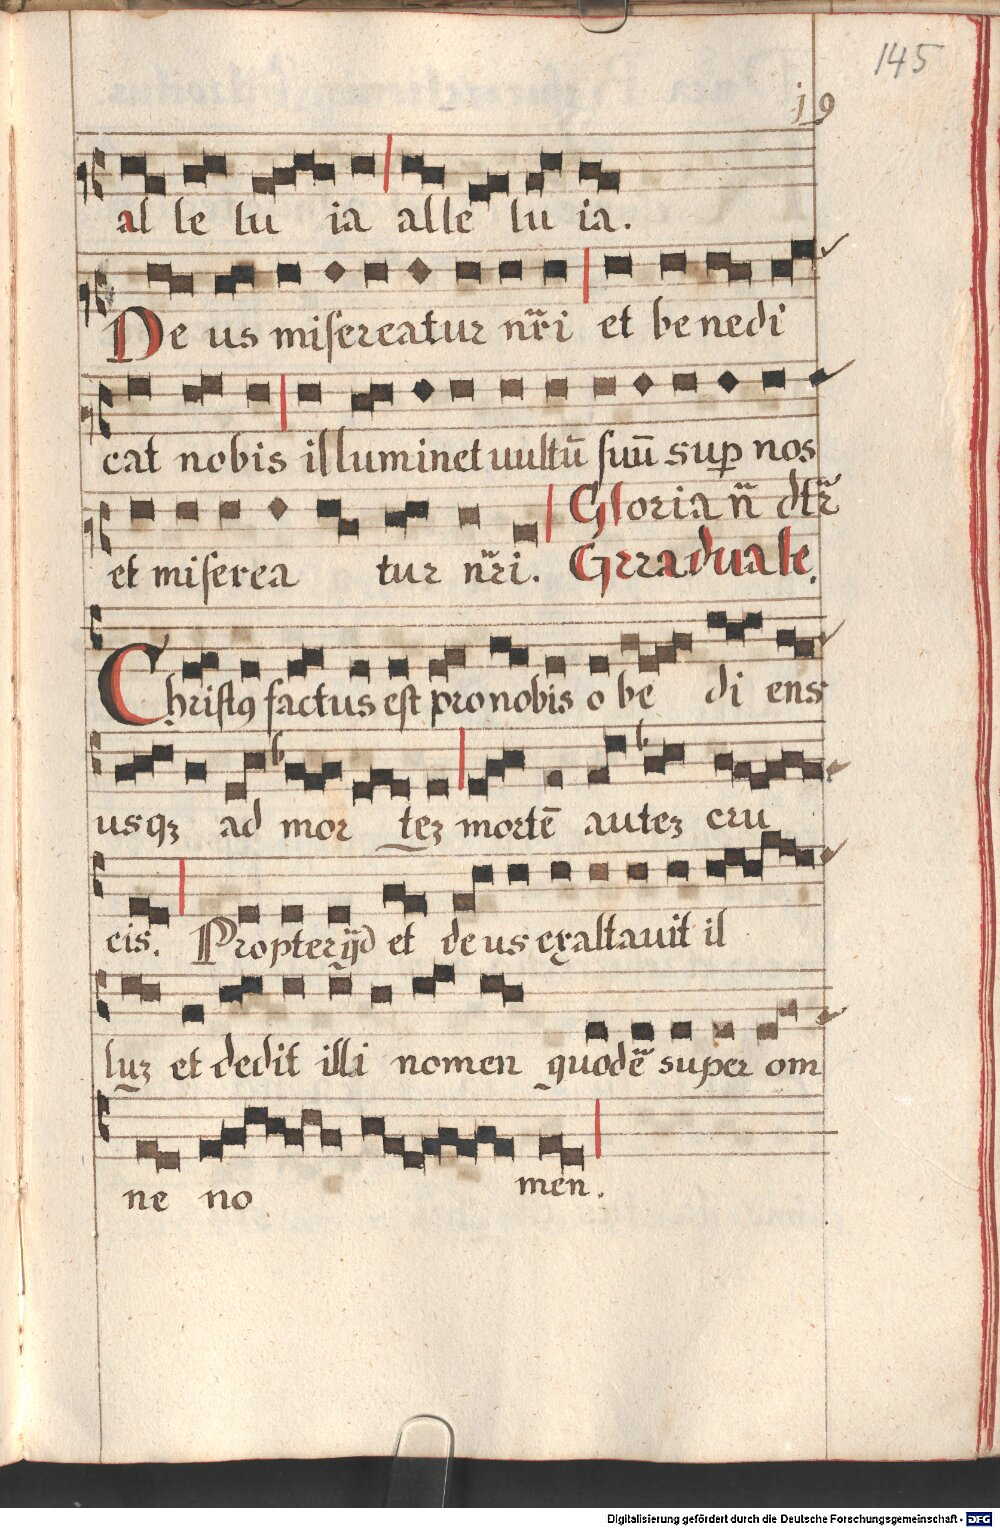 145
19
al le lu ia alle lu ia.
De us misereatur nr̃i et be nedi
cat nobis illuminet uultũ suũ sup nos
et miserea tur nr̃i. Gloria ñ dr̃
Grraduale.
Christꝯ factus est pro nobis o be di ens
usqꝫ ad mor teꝫ mortẽ auteꝫ cru
cis. Propter qd et de us exaltauit il
luꝫ et dedit illi nomen quodẽ super om
ne no men.
Digitalisierung gefördert durch die Deutsche Forschungsgemeinschaft - DFG